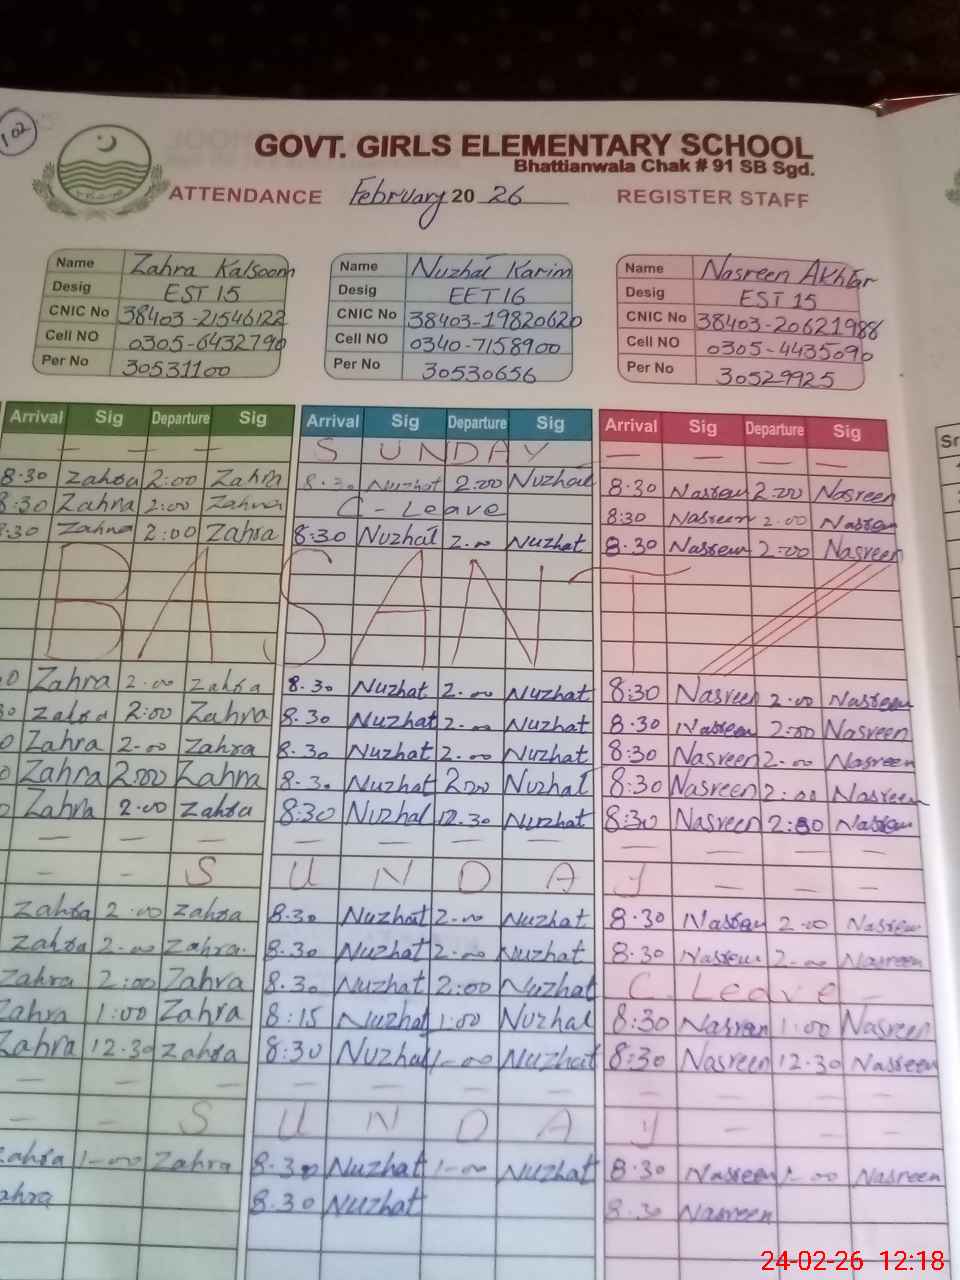 102
GOVT. GIRLS ELEMENTARY SCHOOL
Bhattianwala Chak # 91 SB Sgd.
ATTENDANCE February 20 26 REGISTER STAFF
Name Zahra Kalsoom Name Nuzhat Karim Name Nasreen Akhtar
Desig EST 15 Desig EET 16 Desig EST 15
CNIC No 38403-21546122 CNIC No 38403-19820620 CNIC No 38403-20621988
Cell NO 0305-6432796 Cell NO 0340-7158900 Cell NO 0305-4435090
Per No 30531100 Per No 30530656 Per No 30529925
Arrival Sig Departure Sig Arrival Sig Departure Sig Arrival Sig Departure Sig
— — — S U N D A Y — — — —
8:30 Zahra 2:00 Zahra 8.30 Nuzhat 2:00 Nuzhat 8:30 Nasreen 2:00 Nasreen
8:30 Zahra 2:00 Zahra C - Leave 8:30 Nasreen 2:00 Nasreen
8:30 Zahra 2:00 Zahra 8:30 Nuzhat 2:00 Nuzhat 8:30 Nasreen 2:00 Nasreen
BASANT
0 Zahra 2:00 Zahra 8.30 Nuzhat 2:00 Nuzhat 8:30 Nasreen 2:00 Nasreen
30 Zahra 2:00 Zahra 8.30 Nuzhat 2:00 Nuzhat 8:30 Nasreen 2:00 Nasreen
0 Zahra 2:00 Zahra 8.30 Nuzhat 2:00 Nuzhat 8:30 Nasreen 2:00 Nasreen
0 Zahra 2:00 Zahra 8.30 Nuzhat 2:00 Nuzhat 8:30 Nasreen 2:00 Nasreen
0 Zahra 2:00 Zahra 8:30 Nuzhat 12.30 Nuzhat 8:30 Nasreen Nasreen
— — — — — — — — — —
— — S U N D A Y — — —
Zahra 2:00 Zahra 8.30 Nuzhat 2:00 Nuzhat 8:30 Nasreen 2:00 Nasreen
Zahra 2:00 Zahra. 8.30 Nuzhat 2:00 Nuzhat 8:30 Nasreen 2:00 Nasreen
Zahra 2:00 Zahra 8.30 Nuzhat 2:00 Nuzhat C. Leave —
Zahra 1:00 Zahra 8:15 Nuzhat 1:00 Nuzhat 8:30 Nasreen 1:00 Nasreen
Zahra 12.30 Zahra 8:30 Nuzhat 1:00 Nuzhat 8:30 Nasreen 12.30 Nasreen
— — — — — — — — — —
— — S U N D A Y — — —
Zahra 1:00 Zahra 8.30 Nuzhat 1:00 Nuzhat 8:30 Nasreen 1:00 Nasreen
ahra 8.30 Nuzhat 8.30 Nasreen
Sr
24-02-26 12:18